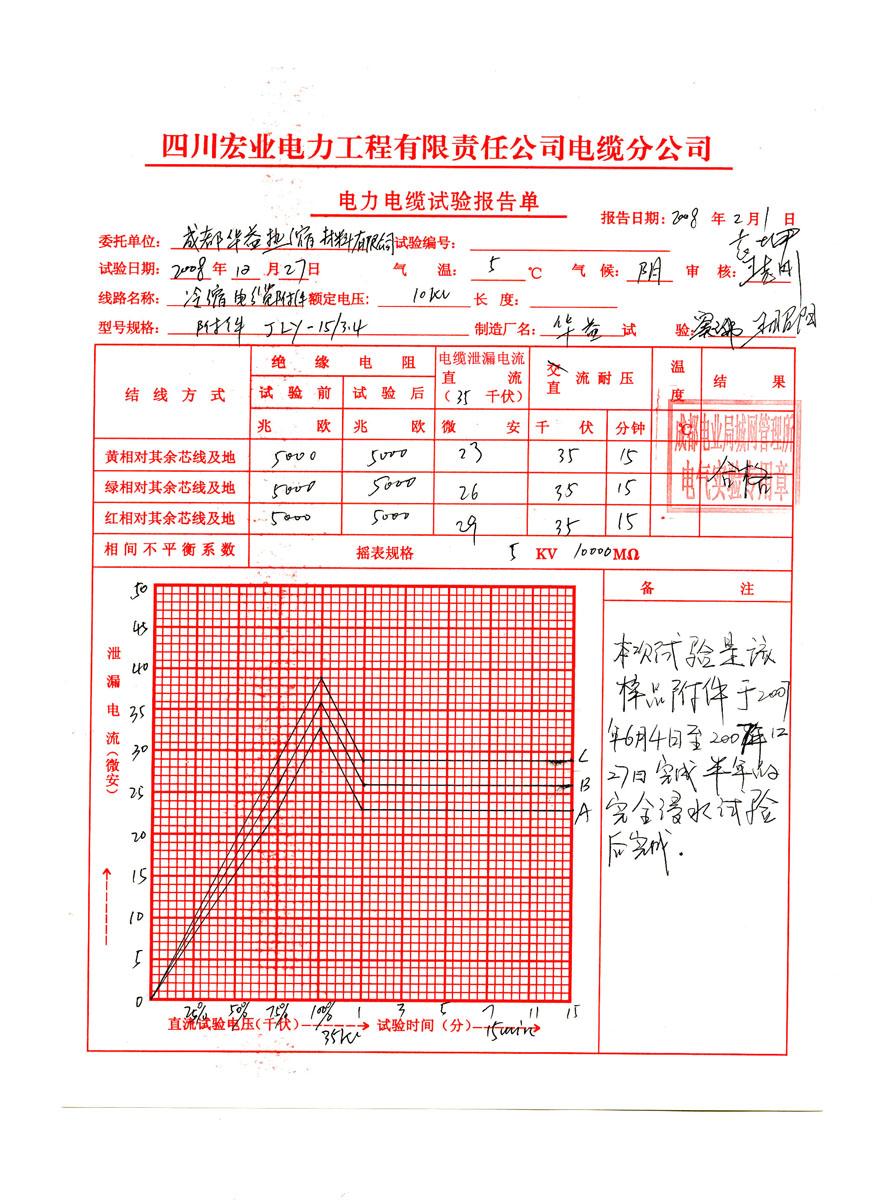 四川宏业电力工程有限责任公司电缆分公司
电力电缆试验报告单
报告日期：2008 年 2 月 1 日
委托单位：成都华益热缩材料有限公司 试验编号：
试验日期：2008 年 12 月 27 日 气 温：5 ℃ 气 候：阴 审 核：
线路名称：冷缩电缆附件 额定电压：10kv 长 度：
型号规格：附件 JLY-15/3.4 制造厂名：华益 试 验：
结 线 方 式 绝 缘 电 阻 电缆泄漏电流 直 流 （35 千伏） 交 直 流 耐 压 温 度 结 果
试 验 前 试 验 后
兆 欧 兆 欧 微 安 千 伏 分钟 ℃
黄相对其余芯线及地 5000 5000 23 35 15
绿相对其余芯线及地 5000 5000 26 35 15 合格
红相对其余芯线及地 5000 5000 29 35 15
成都电业局城网管理所
电气实验专用章
相 间 不 平 衡 系 数 摇表规格 5 KV 10000 MΩ
备 注
本次试验是该
样品附件于2007
年6月4日至2007年12
27日完成半年的
完全浸水试验
后完成.
泄漏电流（微安）
50
45
40
35
30
25
20
15
10
5
0
C
B
A
25% 50% 75% 100% 1 3 5 7 11 15
直流试验电压（千伏） 35kv 试验时间（分） 15min